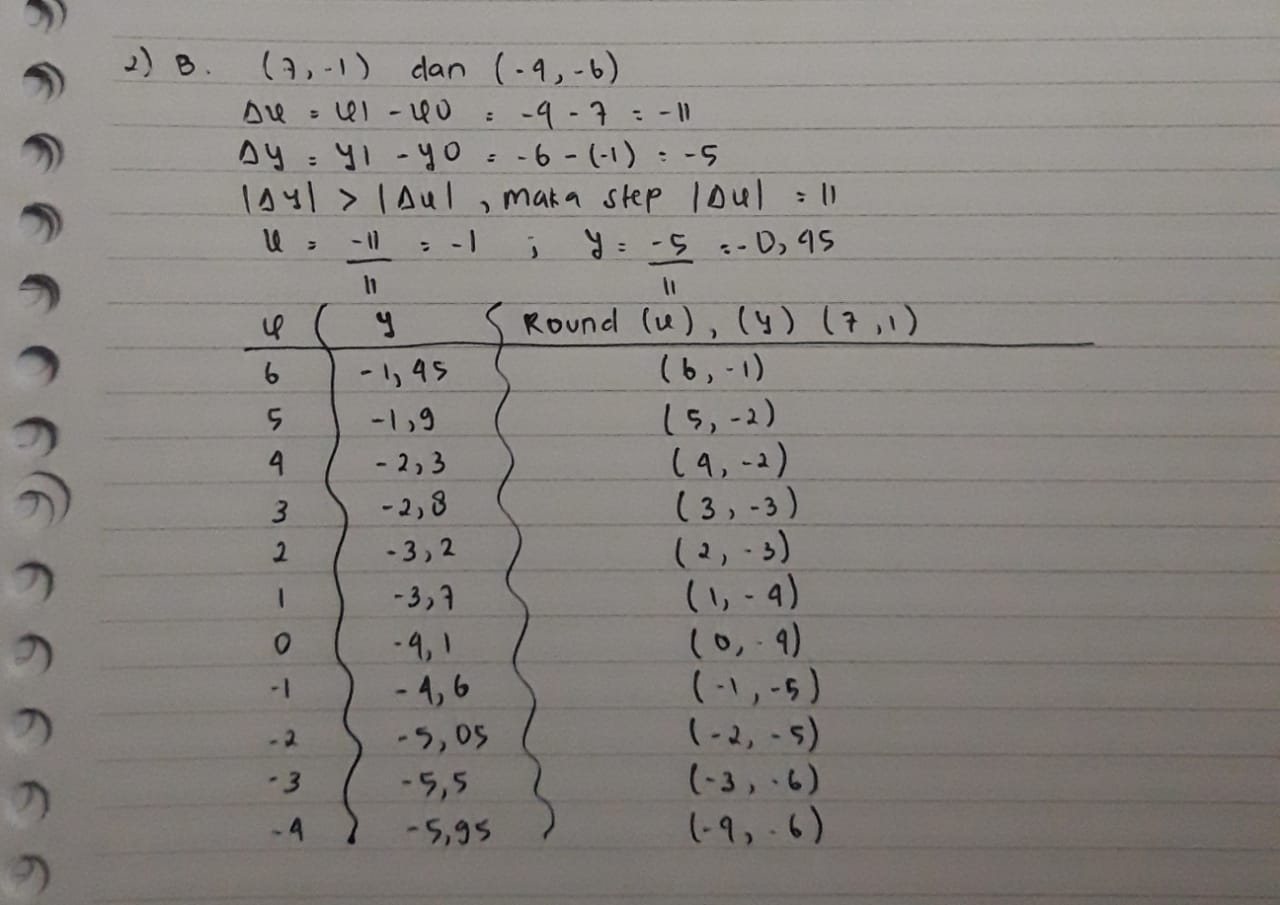 2) B. (7,-1) dan (-4,-6)
Δx = x1 - x0 = -4 - 7 = -11
Δy = y1 - y0 = -6 - (-1) = -5
|Δy| > |Δx| , maka step |Δx| = 11
x = -11/11 = -1 ; y = -5/11 = -0,45
x y Round (x), (y) (7,1)
6 -1,45 (6,-1)
5 -1,9 (5,-2)
4 -2,3 (4,-2)
3 -2,8 (3,-3)
2 -3,2 (2,-3)
1 -3,7 (1,-4)
0 -4,1 (0,-4)
-1 -4,6 (-1,-5)
-2 -5,05 (-2,-5)
-3 -5,5 (-3,-6)
-4 -5,95 (-4,-6)